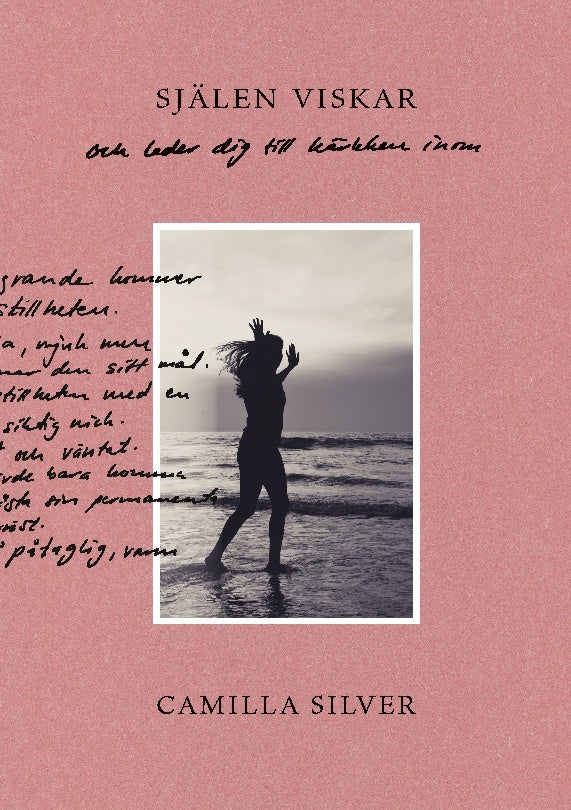 SJÄLEN VISKAR
och leder dig till kärleken inom
grande kommer
stillheten.
a, mjuk men
den sitt mål.
stillheten med en
siktig nick.
och väntat.
bara komma
sin permanenta
påtaglig, varm
CAMILLA SILVER